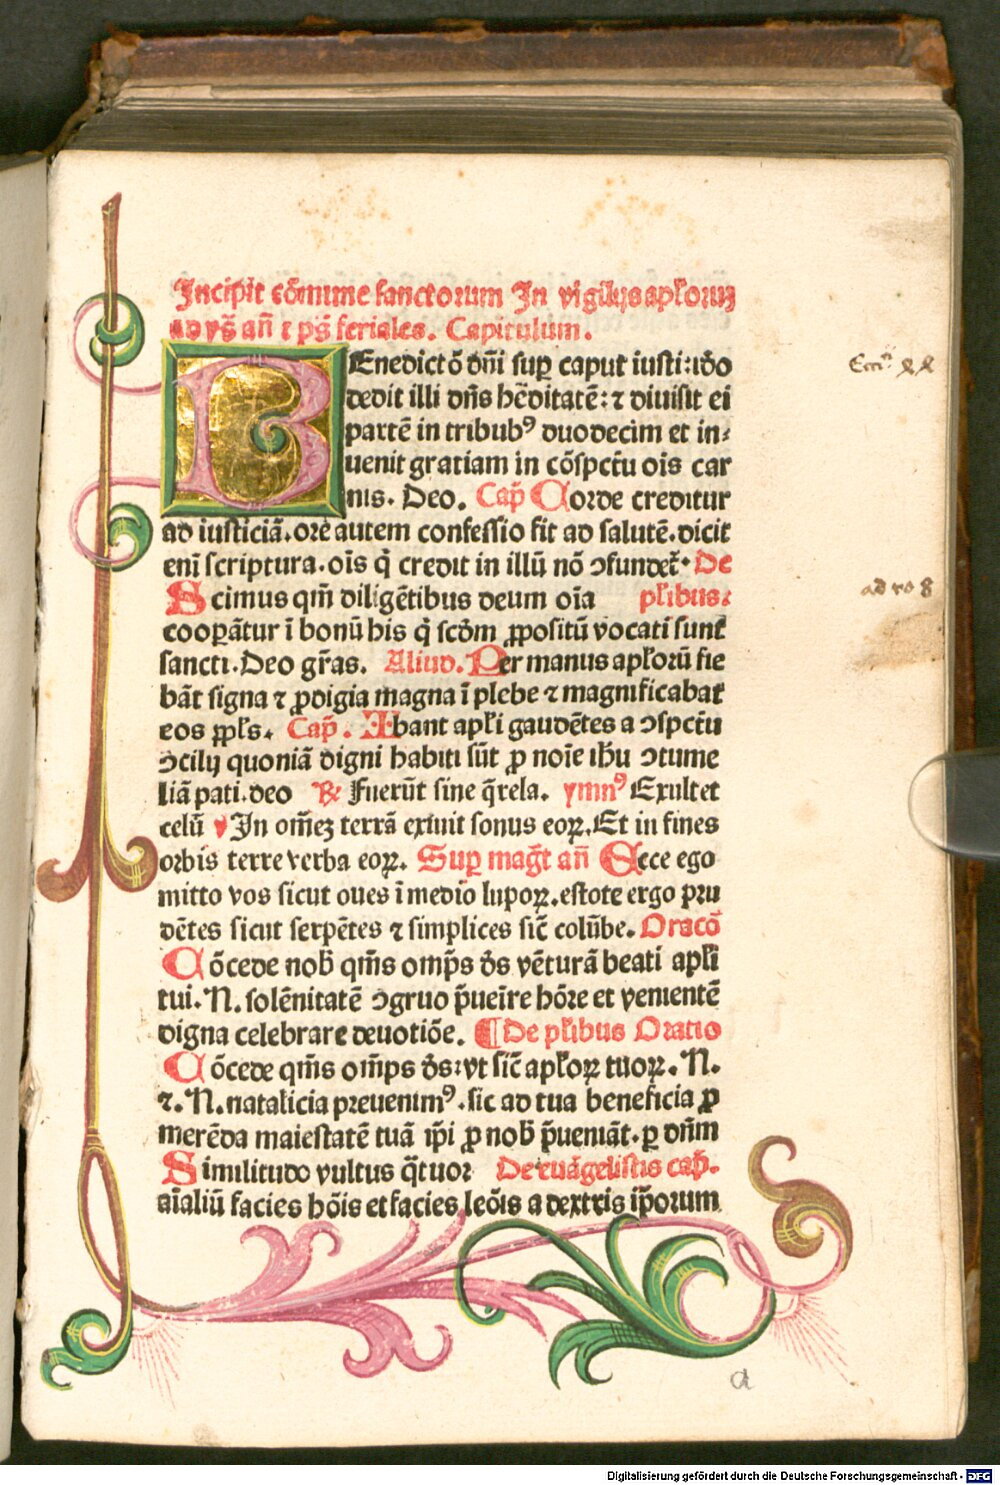 Incipit cōmune sanctorum In vigilijs apl'oruꝫ
ad vṡ añ ⁊ pṡ feriales. Capitulum.
BEnedictō dñi suꝑ caput iusti: iꝺo
dedit illi dñs hēditatē: ⁊ diuisit ei
partē in tribubꝰ duodecim et in⸗
uenit gratiam in cōspectu ois car
nis. Deo. Cap̄ Corde creditur
ad iusticiā. ore autem confessio fit ad salutē. dicit
eni scriptura. oīs q̇ credit in illū nō ↄfundet᷑. De
Scimus qm̄ diligētibus deum oīa pl'ibus.
cooperātur ī bonū his q̇ scd̄m ꝓpositū vocati sunt
sancti. Deo gr̄as. Aliud. Per manus apl'orū fie
bāt signa ⁊ ꝓdigia magna ī plebe ⁊ magnificabat
eos ꝓpl's. Cap̄. Ibant apl'i gaudētes a ↄspectu
ↄcilij quoniā digni habiti sūt ꝓ noīe ihu ↄtume
liā pati. deo ℟ Fuerūt sine q̄rela. ymnꝰ Exultet
celū ℣ In om̄eꝫ terrā exiuit sonus eoꝝ. Et in fines
orbis terre verba eoꝝ. Suꝑ mag̃t añ Ecce ego
mitto vos sicut oues ī medio lupoꝝ. estote ergo pru
dētes sicut serpētes ⁊ simplices sic̄ colūbe. Oracō
Cōcede nob̄ qm̄s omp̄s d̄s vēturā beati apl'i
tui. N. solēnitatē ↄgruo p̄ueīre hōre et venientē
digna celebrare deuotiōe. ¶ De pl'ibus Oratio
Cōcede qm̄s om̄ps d̄s: vt sic̄ apl'oꝝ tuoꝝ. N.
⁊. N. natalicia preuenimꝰ. sic ad tua beneficia ꝓ
merēda maiestatē tuā ip̄i ꝓ nob̄ p̄ueniāt. ꝑ dn̄m
Similitudo vultus q̄tuor De euāgelistis cap̄.
aīaliū facies hōis et facies leōis a dextris ip̄orum
Ecci. xx
ad ro 8
a
Digitalisierung gefördert durch die Deutsche Forschungsgemeinschaft - DFG